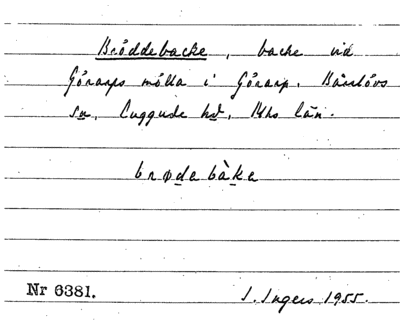 Bröddebacke, backe vid
Görarps mölla i Görarp, Bårslövs
sn, Luggude hd, Mhs län.
brødebàka
Nr 6381. I. Ingers 1955.